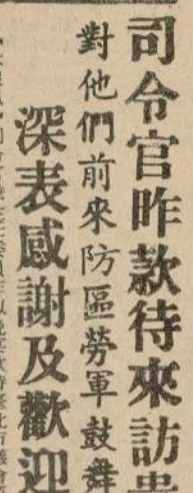 司令官昨款待來訪
對他們前來防區勞軍鼓舞
深表感謝及歡迎